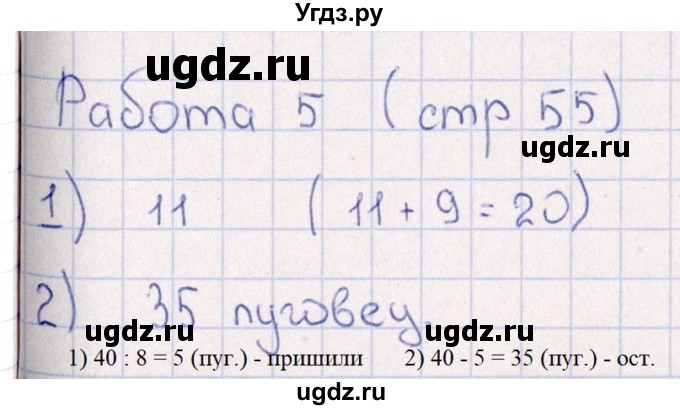 Угдз.ру
ugdz.ru
Работа 5 (стр 55)
ugdz.ru
1) 11 (11 + 9 = 20)
2) 35 пуговец.
ugdz.ru ugdz.ru
1) 40 : 8 = 5 (пуг.) - пришили 2) 40 - 5 = 35 (пуг.) - ост.
ugdz.ru